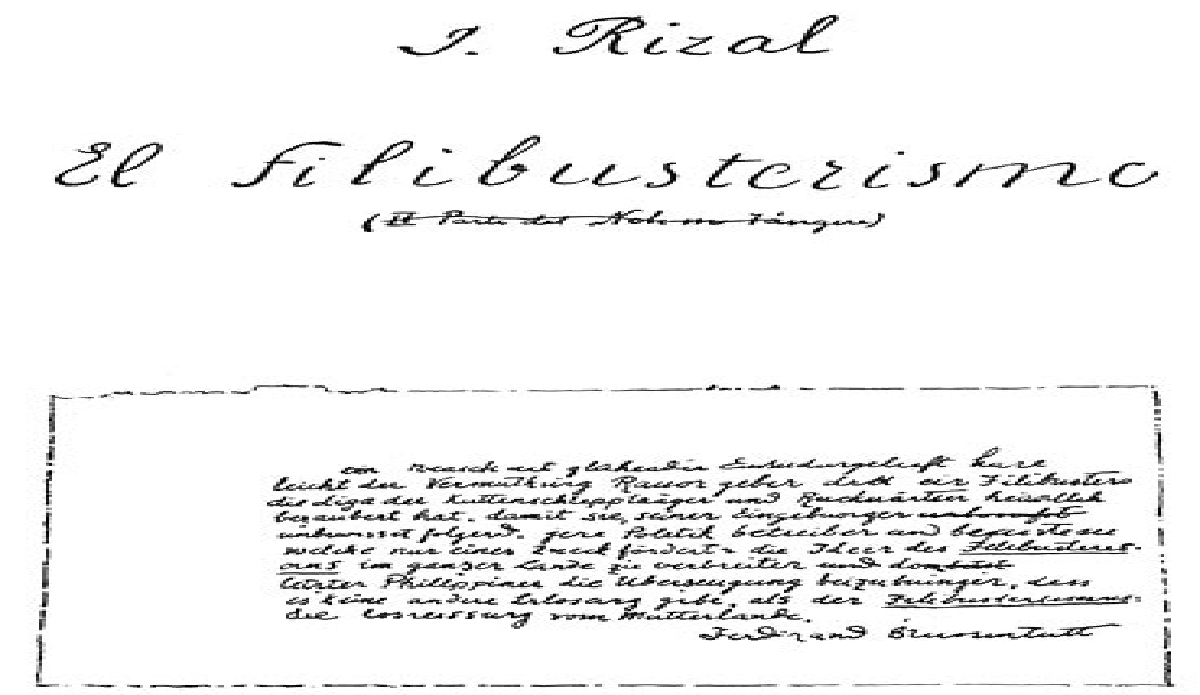 J. Rizal
El Filibusterismo
(II Parte del Noli me Tángere)
leicht der Vermuthung Raum geben dass ein Filibustero
die Liga der Kuttenschleppträger und heimlich
bezaubert hat. damit sie, seiner Eingebungen
unbewusst folgend. jene Politik betreiben und
welche nur einen Zweck fördert = die Ideen des Filibusteris-
mus im ganzen Lande zu verbreiten und
letzten Philippiner die Überzeugung beizubringen, dass
es keine andere Erlösung gibt, als der Filibusterismus-
die Losreissung vom Mutterlande.
Ferdinand Blumentritt